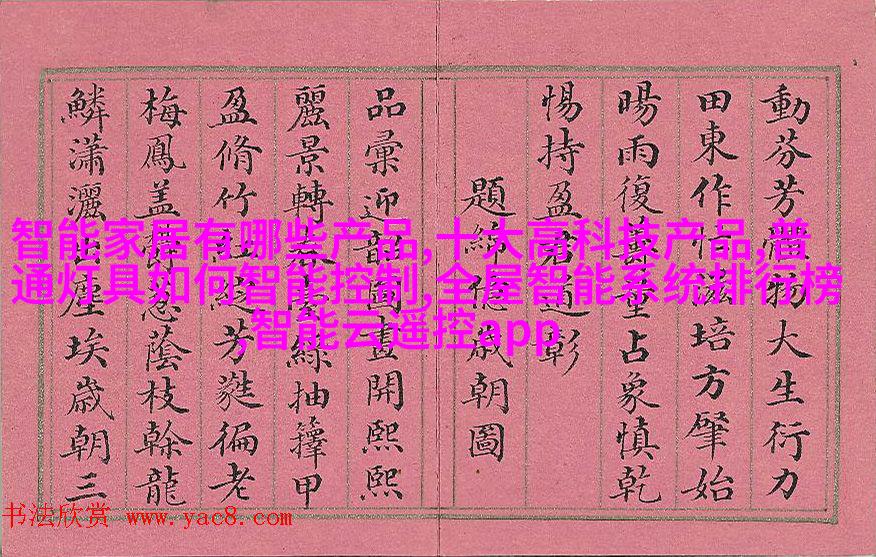 動芬芳物大生衍力
田東作培方肇始
暘雨復占象慎乾
惕持盈道彰
題億歲朝圖
品彙迎韶圖畫開熙熙
麗景轉綠抽籜甲
盈脩竹縱芳蕤徧老
梅鳳蓋蔥蔭枝榦龍
鱗瀟灑出塵埃歲朝三
智能家居有哪些产品,十大高科技产品,普
通灯具如何智能控制,全屋智能系统排行榜
,智能云遥控app
书法欣赏 www.yac8.com